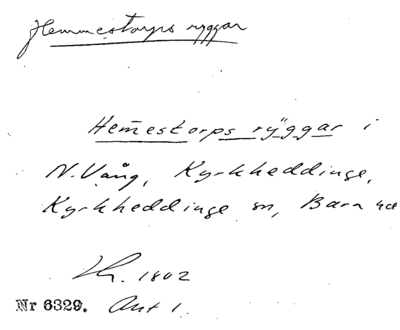 Hemmestorps ryggar
Hem̄estorps rÿggar i
N. Vång, Kyrkheddinge,
Kyrkheddinge sn, Bara hd
1802
Nr 6329. Akt 1.